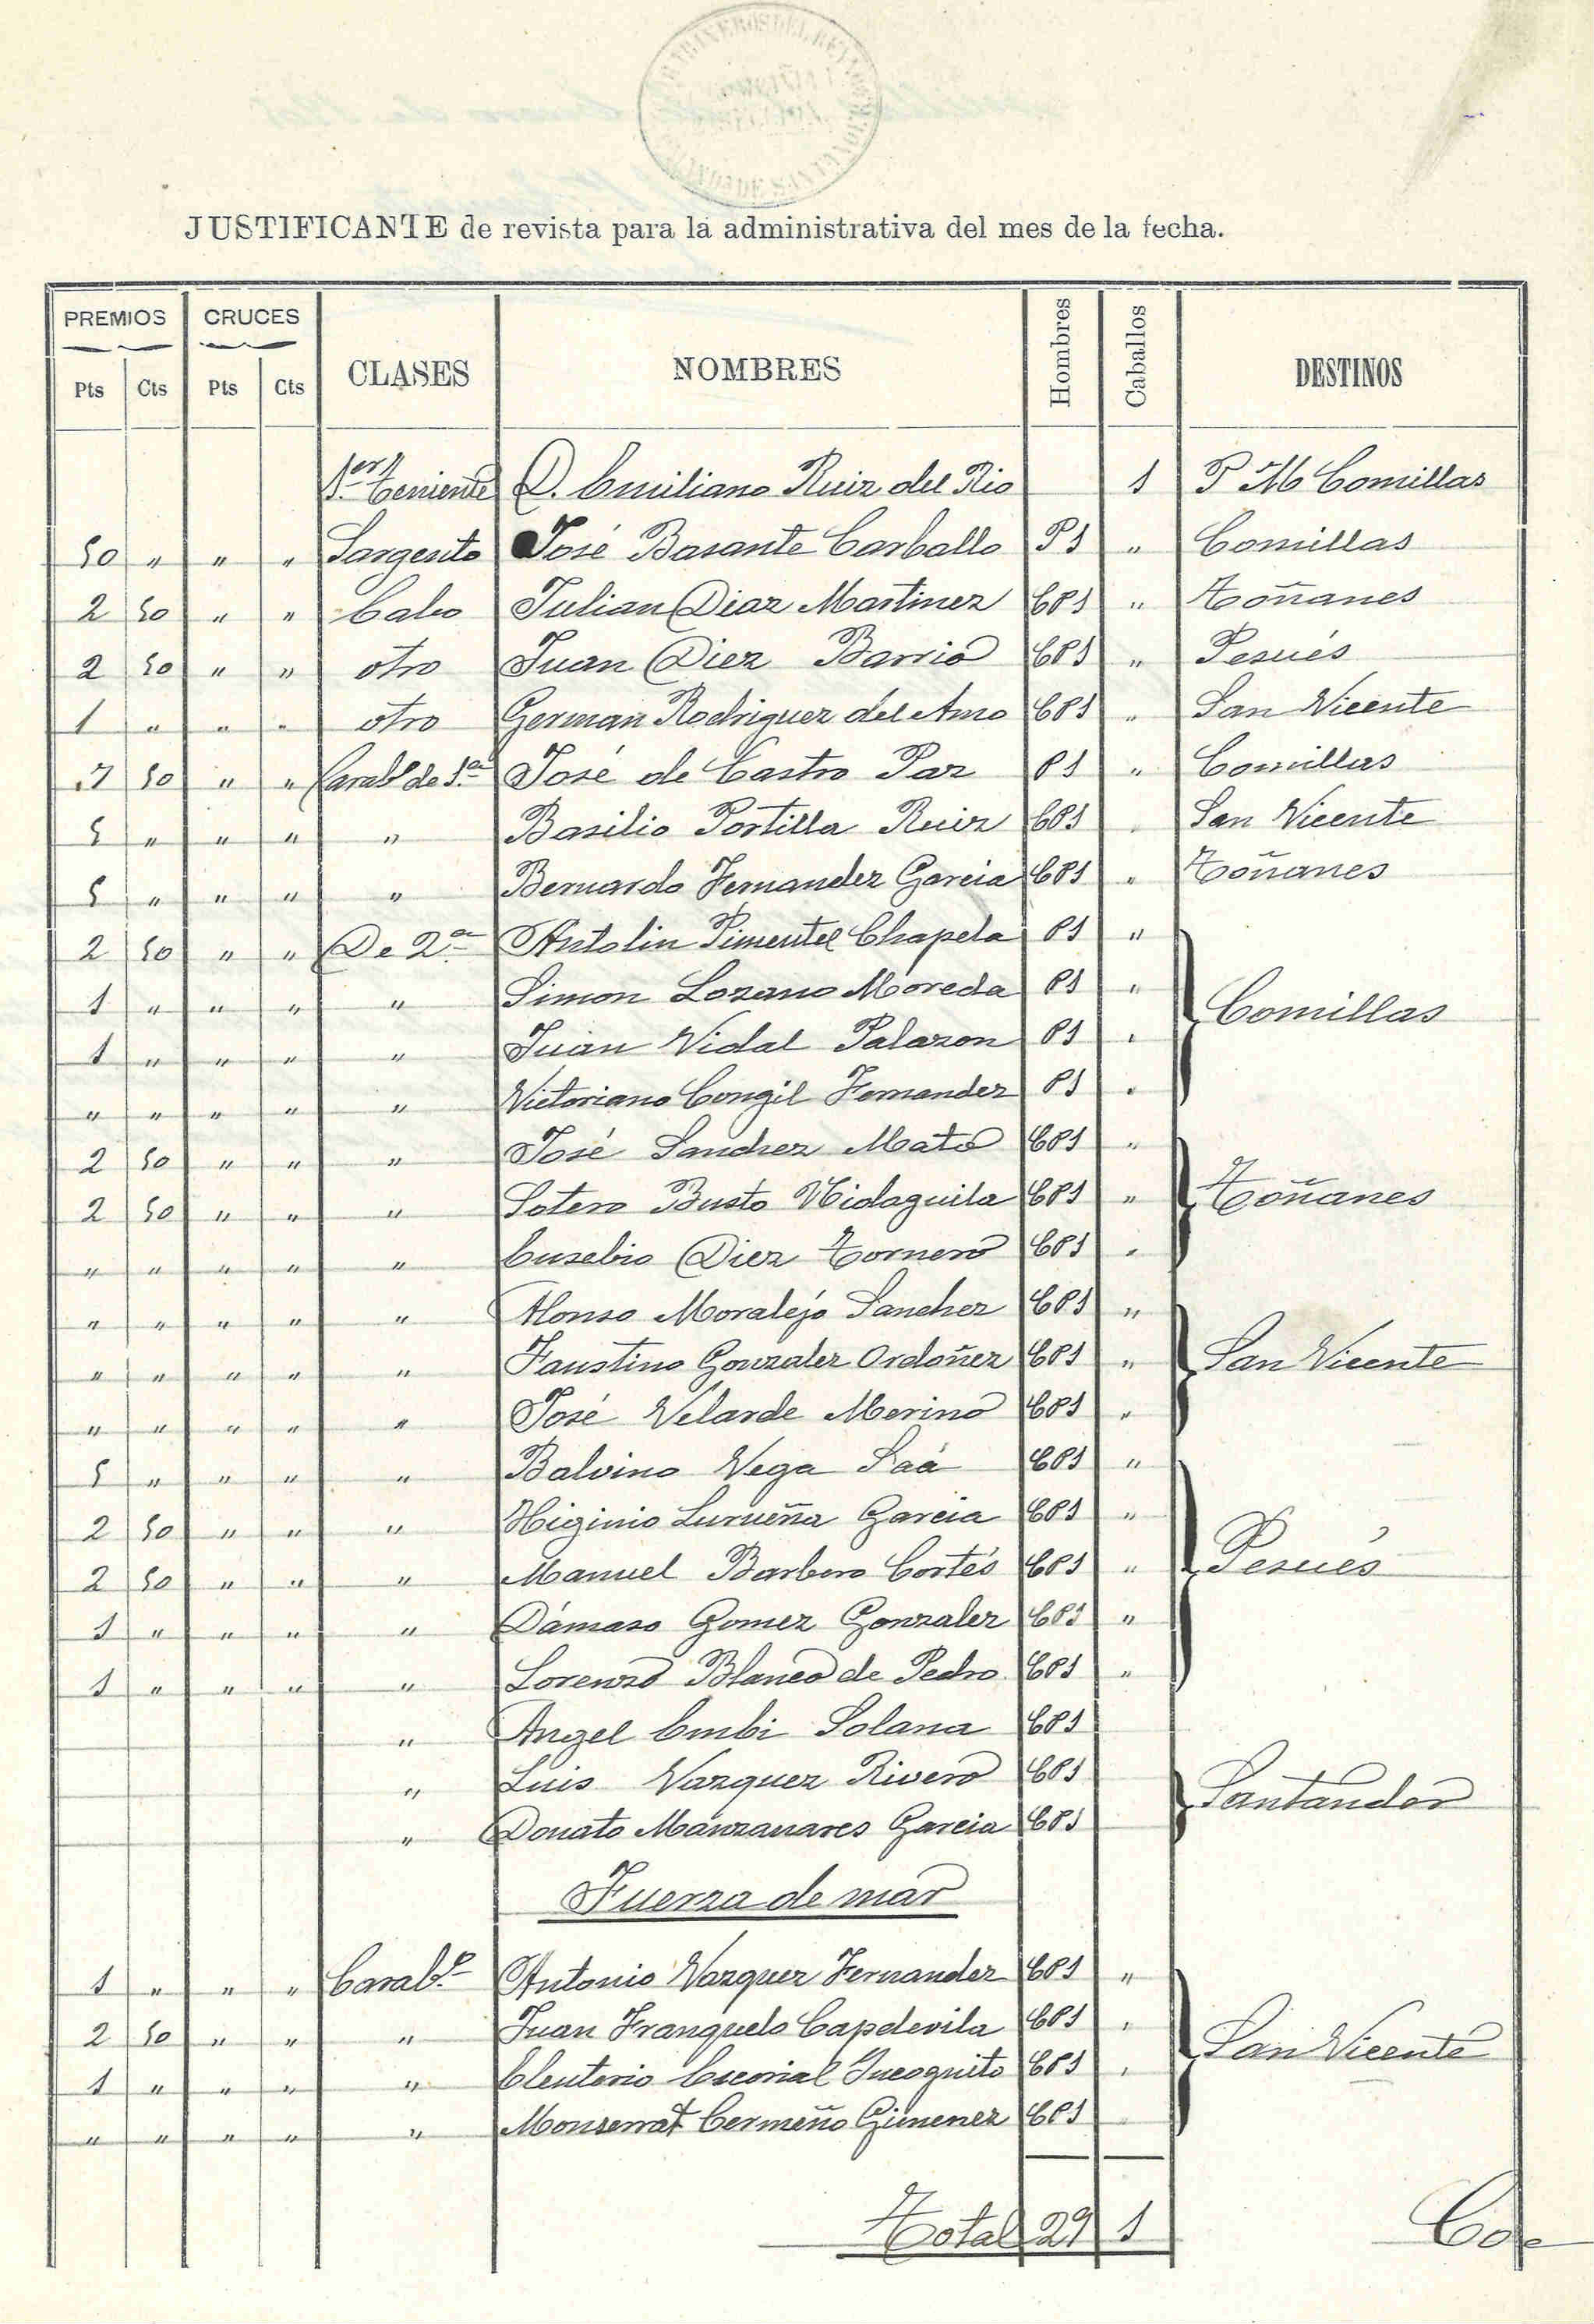 JUSTIFICANTE de revista para la administrativa del mes de la fecha.
PREMIOS CRUCES CLASES NOMBRES Hombres Caballos DESTINOS
Pts Cts Pts Cts
1.er Teniente D. Emiliano Ruiz del Rio 1 P M Comillas
50 " " " Sargento José Basante Carballo P1 " Comillas
2 50 " " Cabo Julian Diaz Martinez CP1 " Toñanes
2 50 " " otro Juan Diez Barrio CP1 " Pesués
1 " " " otro German Rodriguez del Amo CP1 " San Vicente
7 50 " " Carab.o de 1.a José de Castro Paz P1 " Comillas
5 " " " " Basilio Portilla Ruiz CP1 " San Vicente
5 " " " " Bernardo Fernandez Garcia CP1 " Toñanes
2 50 " " De 2.a Antolin Pimentel Chapela P1 "
1 " " " " Simon Lozano Moreda P1 " Comillas
1 " " " " Juan Vidal Palazon P1 "
" " " " " Victoriano Congil Fernandez P1 "
2 50 " " " José Sanchez Mato CP1 "
2 50 " " " Sotero Busto Vidaguila CP1 " Toñanes
" " " " " Eusebio Diez Tornero CP1 "
" " " " " Alonso Moralejo Sanchez CP1 "
" " " " " Faustino Gonzalez Ordoñez CP1 " San Vicente
" " " " " José Velarde Merino CP1 "
5 " " " " Balvino Vega Saá CP1 "
2 50 " " " Higinio Lurueña Garcia CP1 "
2 50 " " " Manuel Barbero Cortés CP1 " Pesués
1 " " " " Dámaso Gomez Gonzalez CP1 "
1 " " " " Lorenzo Blanco de Pedro CP1 "
" Angel Embi Solana CP1
" Luis Vazquez Rivero CP1 Santander
" Donato Manzanares Garcia CP1
Fuerza de mar
1 " " " Carab.o Antonio Vazquez Fernandez CP1 "
2 50 " " " Juan Franquelo Capdevila CP1 " San Vicente
1 " " " " Eleuterio Escorial Incognito CP1 "
" " " " " Monserrat Cermeño Gimenez CP1 "
Total 29 1
Co